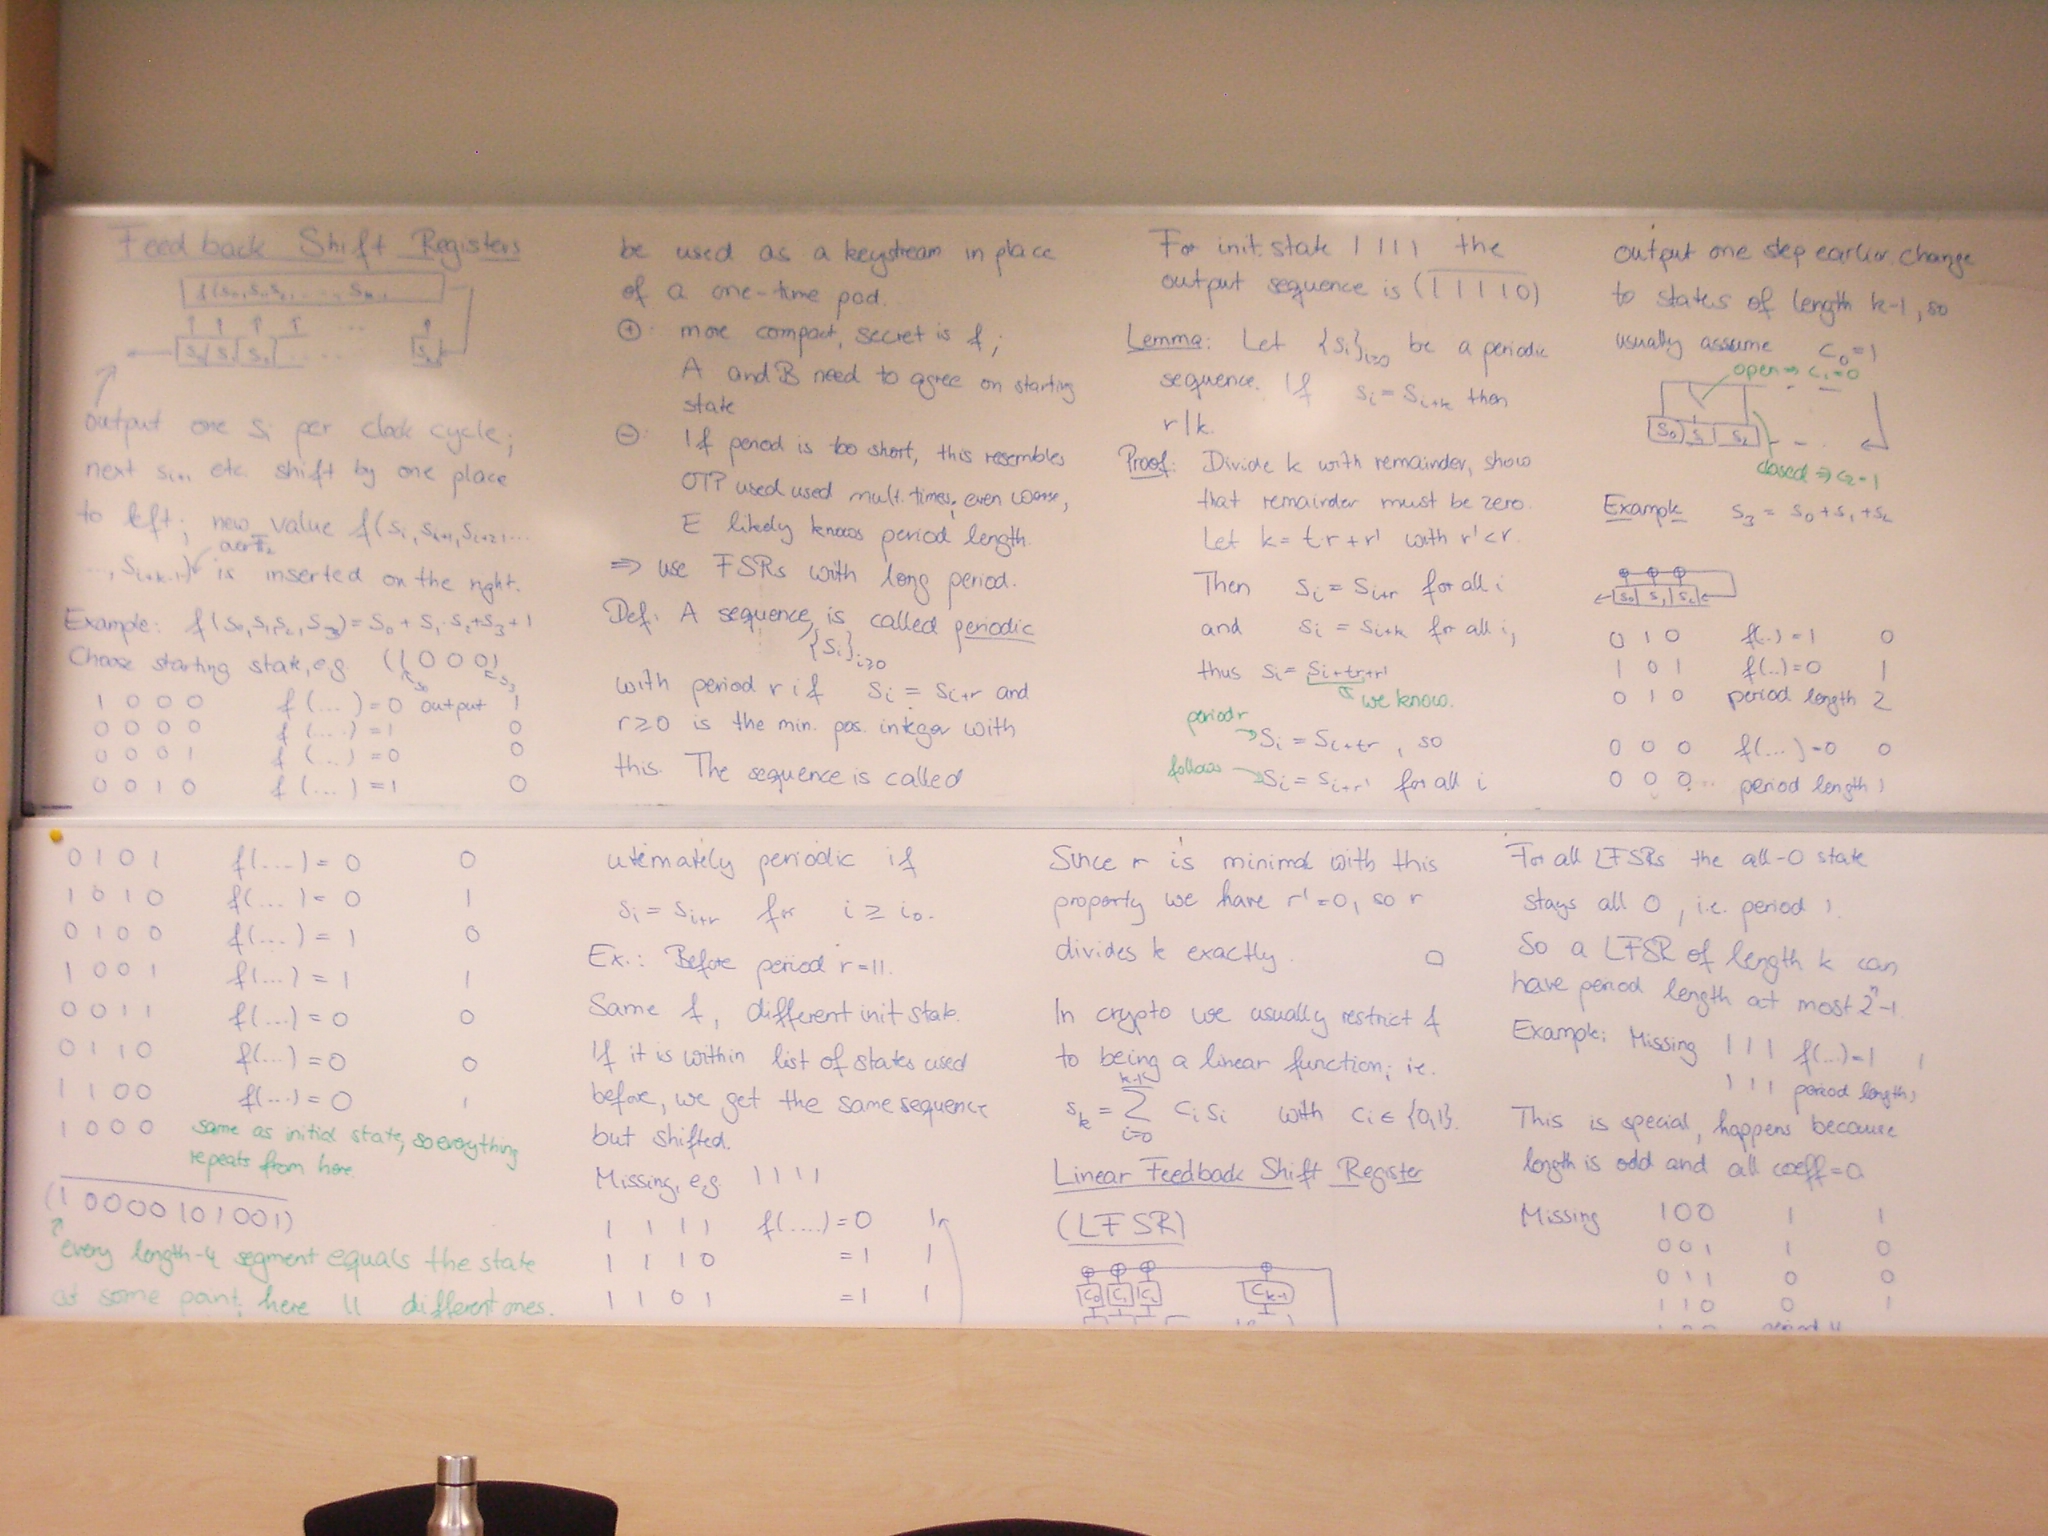 Feedback Shift Registers
S₀ S₁ S₂ ....
output one Sᵢ per clock cycle;
next Sᵢ₊₁ etc. shift by one place
to left; new value f(Sᵢ, Sᵢ₊₁, Sᵢ₊₂, ...
..., Sᵢ₊ₖ₋₁) is inserted on the right.
Example: f(S₀,S₁,S₂,S₃) = S₀ + S₁·S₂+S₃+1
Choose starting state, e.g. (1 0 0 0)
S₀ S₃
1 0 0 0 f(...)=0 output 1
0 0 0 0 f(....)=1 0
0 0 0 1 f(...)=0 0
0 0 1 0 f(...)=1 0
0 1 0 1 f(....) = 0 0
1 0 1 0 f(...) = 0 1
0 1 0 0 f(...) = 1 0
1 0 0 1 f(...) = 1 1
0 0 1 1 f(...) = 0 0
0 1 1 0 f(...) = 0 0
1 1 0 0 f(...) = 0 1
1 0 0 0 same as initial state, so everything
repeats from here
(1 0000 101001)
every length-4 segment equals the state
at some point, here 11 different ones.
be used as a keystream in place
of a one-time pad.
⊕: more compact, secret is f;
A and B need to agree on starting
state
⊖: If period is too short, this resembles
OTP used used mult. times, even worse,
E likely knows period length.
⇒ use FSRs with long period.
Def: A sequence is called periodic
{Sᵢ}ᵢ≥₀
with period r if Sᵢ = Sᵢ₊ᵣ and
r≥0 is the min. pos. integer with
this. The sequence is called
utimately periodic if
Sᵢ = Sᵢ₊ᵣ for i ≥ i₀.
Ex.: Before period r=11.
Same f, different init state.
If it is within list of states used
before, we get the same sequence
but shifted.
Missing, e.g. 1 1 1 1
1 1 1 1 f(....)=0 1
1 1 1 0 =1 1
1 1 0 1 =1 1
For init. state 1 1 1 1 the
output sequence is (1 1 1 1 0)
Lemma: Let {Sᵢ}ᵢ≥₀ be a periodic
sequence. If Sᵢ = Sᵢ₊ₖ then
r|k.
Proof: Divide k with remainder, show
that remainder must be zero.
Let k = t·r + r' with r'<r.
Then Sᵢ = Sᵢ₊ᵣ for all i
and Sᵢ = Sᵢ₊ₖ for all i,
thus Sᵢ = Sᵢ₊ₜᵣ₊ᵣ'
we know.
period r
Sᵢ = Sᵢ₊ₜᵣ , so
follows Sᵢ = Sᵢ₊ᵣ' for all i
Since r is minimal with this
property we have r'=0, so r
divides k exactly. □
In crypto we usually restrict f
to being a linear function; i.e.
Sₖ = ∑ᵢ₌₀ᵏ⁻¹ cᵢ Sᵢ with cᵢ ∈ {0,1}.
Linear Feedback Shift Register
(LFSR)
C₀ C₁ C₂ Cₖ₋₁
output one step earlier. change
to states of length k-1, so
usually assume C₀ = 1
open ⇒ C₁=0
S₀ S₁ S₂
closed ⇒ C₂=1
Example S₃ = S₀+S₁+S₂
S₀ S₁ S₂
0 1 0 f(..)=1 0
1 0 1 f(..)=0 1
0 1 0 period length 2
0 0 0 f(...)=0 0
0 0 0 .. period length 1
For all LFSRs the all-0 state
stays all 0, i.e. period 1.
So a LFSR of length k can
have period length at most 2ⁿ-1.
Example: Missing 1 1 1 f(...)=1 1
1 1 1 period length 1
This is special, happens because
length is odd and all coeff=a
Missing 1 0 0 1 1
0 0 1 1 0
0 1 1 0 0
1 1 0 0 1
1 0 0 period 4